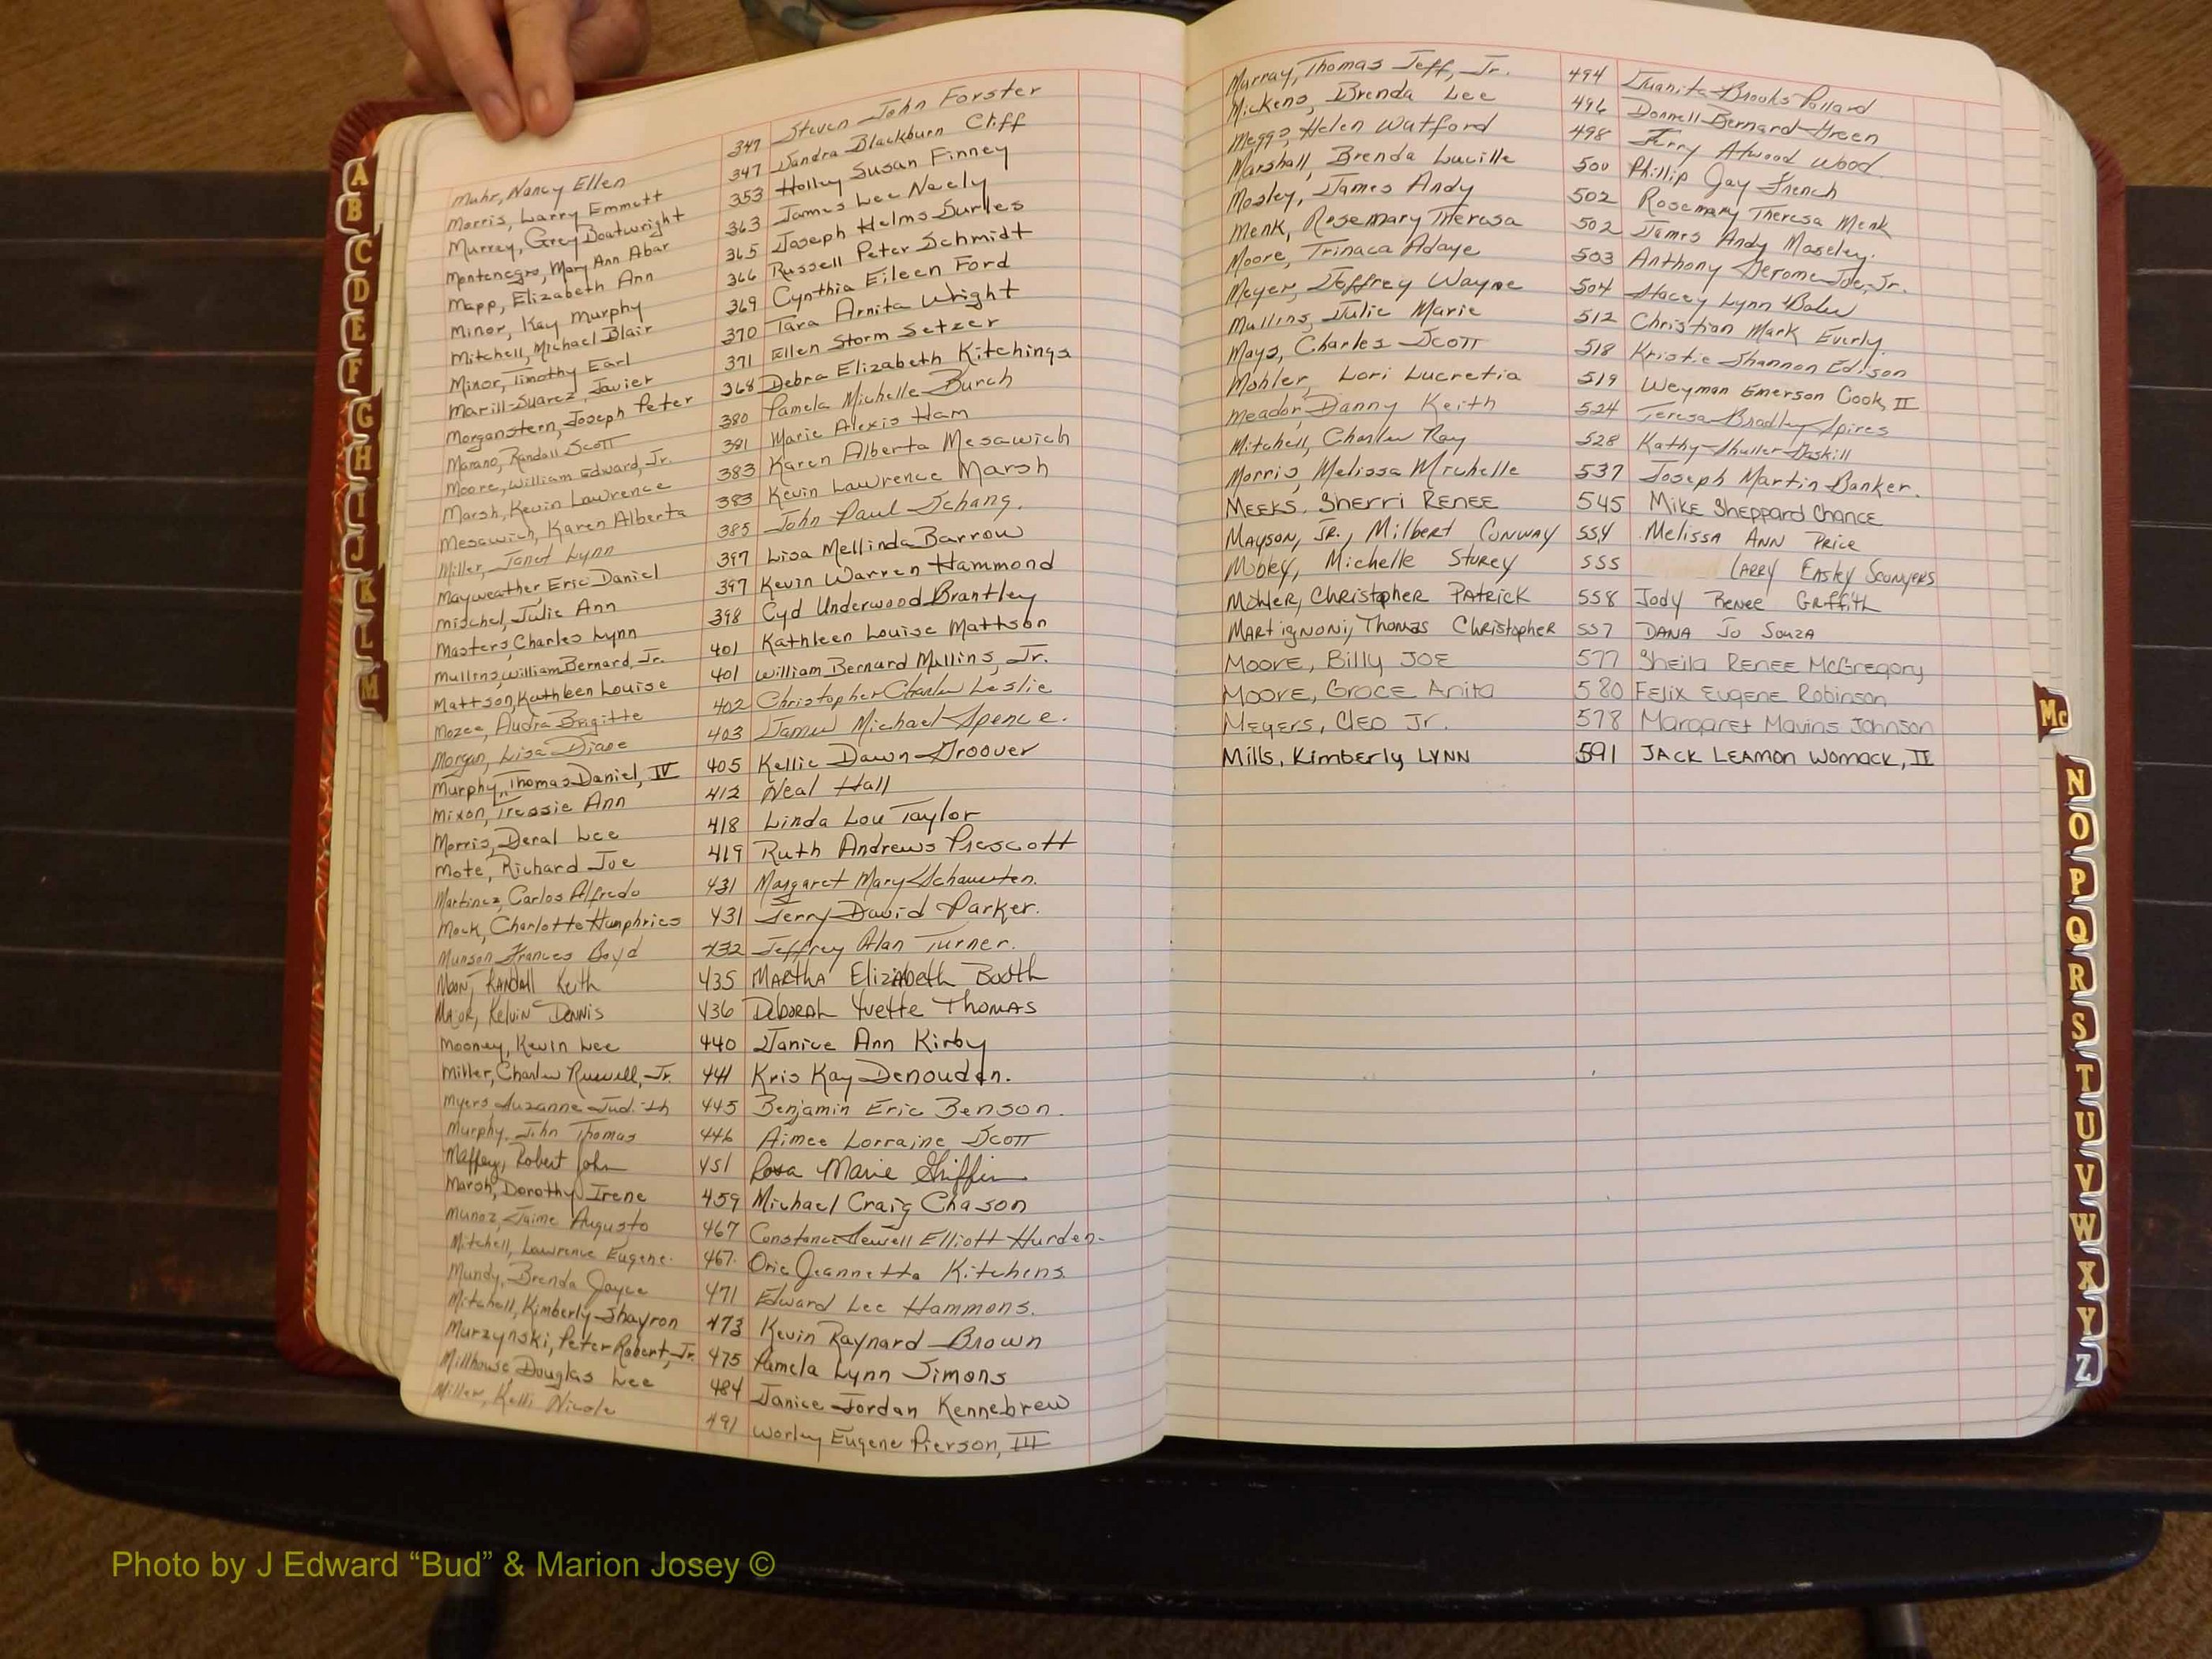 A
B
C
D
E
F
G
H
I
J
K
L
M
Muhr, Nancy Ellen 347 Steven John Forster
Morris, Larry Emmett 347 Sandra Blackburn Cliff
Murrey, Grey Boatwright 353 Holley Susan Finney
Montenegro, Mary Ann Abar 363 James Lee Neely
Mapp, Elizabeth Ann 365 Joseph Helms Surles
Minor, Kay Murphy 366 Russell Peter Schmidt
Mitchell, Michael Blair 369 Cynthia Eileen Ford
Minor, Timothy Earl 370 Tara Arnita Wright
Marill-Suarez, Javier 371 Ellen Storm Setzer
Morganstern, Joseph Peter 368 Debra Elizabeth Kitchings
Marano, Randall Scott 380 Pamela Michelle Burch
Moore, William Edward, Jr. 381 Marie Alexis Ham
Marsh, Kevin Lawrence 383 Karen Alberta Mesawich
Mesawich, Karen Alberta 383 Kevin Lawrence Marsh
Miller, Janet Lynn 385 John Paul Schang.
Mayweather, Eric Daniel 397 Lisa Mellinda Barrow
Mischel, Julie Ann 397 Kevin Warren Hammond
Masters, Charles Lynn 398 Cyd Underwood Brantley
Mullins, William Bernard, Jr. 401 Kathleen Louise Mattson
Mattson, Kathleen Louise 401 William Bernard Mullins, Jr.
Mozee, Audra Brigitte 402 Christopher Charles Leslie
Morgan, Lisa Diane 403 James Michael Spence.
Murphy, Thomas Daniel, IV 405 Kellie Dawn Groover
Mixon, Tressie Ann 412 Neal Hall
Morris, Deral Lee 418 Linda Lou Taylor
Mote, Richard Joe 419 Ruth Andrews Prescott
Martinez, Carlos Alfredo 431 Margaret Mary
Mock, Charlotte Humphries 431 Jerry David Parker.
Munson Frances Boyd 432 Jeffrey Alan Turner.
Moon, Randall Keith 435 Martha Elizabeth Booth
Major, Kelvin Dennis 436 Deborah Yvette Thomas
Mooney, Kevin Lee 440 Janice Ann Kirby
Miller, Charles Russell, Jr. 441 Kris Kay Denouden.
Myers, Suzanne Judith 445 Benjamin Eric Benson.
Murphy, John Thomas 446 Aimee Lorraine Scott
Maffey, Robert John 451 Rosa Marie Griffin
Marsh, Dorothy Irene 459 Michael Craig Chason
Munoz, Jaime Augusto 467 Constance Sewell Elliott Hurden-
Mitchell, Lawrence Eugene. 467. Orie Jeannetta Kitchens.
Mundy, Brenda Joyce 471 Edward Lee Hammons.
Mitchell, Kimberly Shayron 473 Kevin Raynard Brown
Murzynski, Peter Robert, Jr. 475 Pamela Lynn Simons
Millhouse, Douglas Lee 484 Janice Jordan Kennebrew
Miller, Kelli Nicole 491 Worley Eugene Pierson, III
Murray, Thomas Jeff, Jr. 494 Juanita Brooks Pollard
Mickens, Brenda Lee 496 Donnell Bernard Green
Meggs, Helen Watford 498 Jerry Atwood Wood.
Marshall, Brenda Lucille 500 Phillip Jay French
Mosley, James Andy 502 Rosemary Theresa Menk
Menk, Rosemary Theresa 502 James Andy Moseley.
Moore, Trinaca Adaye 503 Anthony Jerome Joe, Jr.
Meyer, Jeffrey Wayne 504 Stacey Lynn
Mullins, Julie Marie 512 Christian Mark Everly.
Mays, Charles Scott 518 Kristie Shannon Edison
Mohler, Lori Lucretia 519 Weyman Emerson Cook, II
Meador, Danny Keith 524 Teresa Bradley Spires
Mitchell, Charles Ray 528 Kathy Shuller Gaskill
Morris, Melissa Michelle 537 Joseph Martin Banker.
MEEKS, Sherri RENEE 545 Mike Sheppard Chance
Mayson, Jr., Milbert Conway 554 Melissa Ann Price
Mobley, Michelle Storey 555 Larry Easky Scunyers
Mohler, Christopher Patrick 558 Jody Renee Griffith
Martignoni, Thomas Christopher 557 Dana Jo Souza
MOORE, Billy JOE 577 Sheila RENEE McGregory
MOORE, Grace Anita 580 Felix Eugene Robinson
MEYERS, CLEO Jr. 578 Margaret Mavins Johnson
Mills, Kimberly LYNN 591 JACK LEAMON WOMACK, II
Mc
N
O
P
Q
R
S
T
U
V
W
X
Y
Z
Photo by J Edward “Bud” & Marion Josey ©